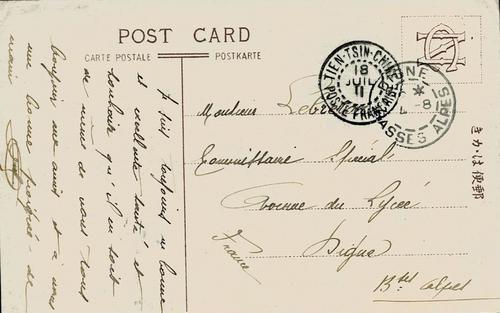 POST CARD
CARTE POSTALE
POSTKARTE
TIEN-TSIN-CHINE
18
JUIL
11
POSTE FRANÇAISE
NE
*
-8
BASSES ALPES
きかは便郵
Monsieur
Commissaire Spécial
Avenue du Lycée
Digne
France
Bses Alpes
Je suis toujours en bonne
et excellente santé et
souhaite qu'il en soit
de même de vous tous
Bonjour aux amis et à vous
une bonne poignée de
main